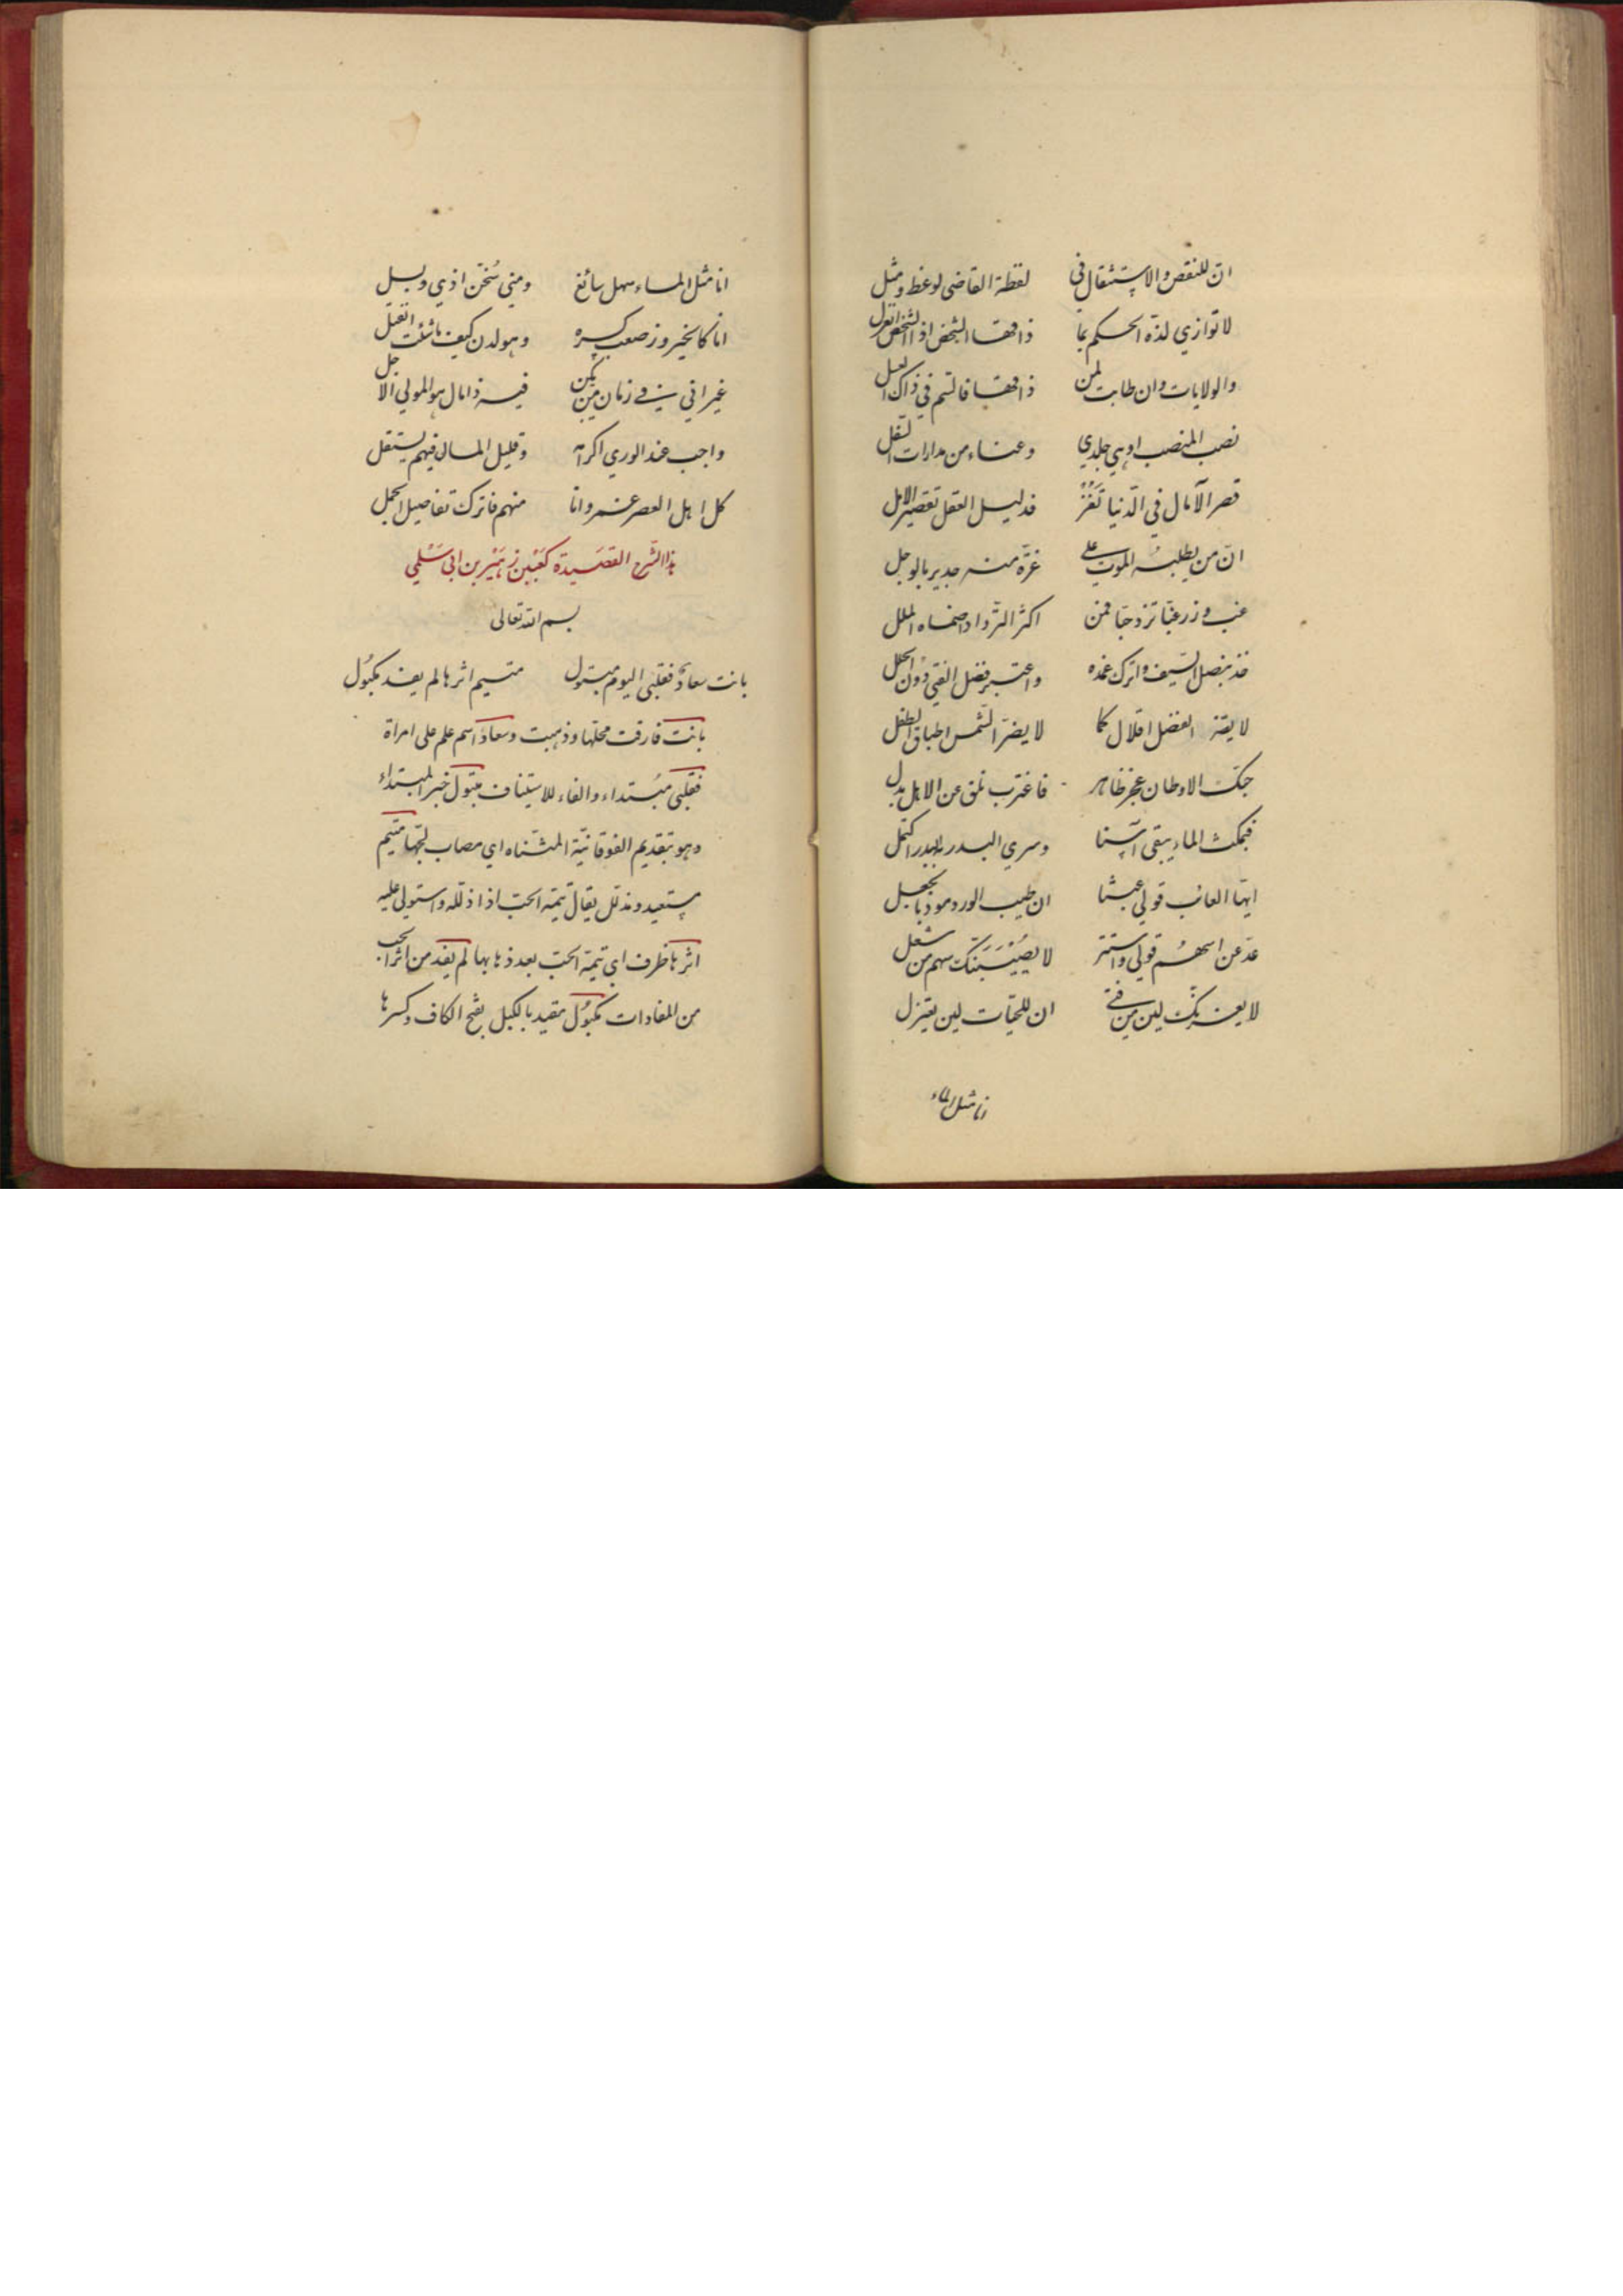 ان للنقص والاستثقال في لفظة القاضي لوعظ ومثل
لا توازي لذة الحكم بما ذاقها الشخص اذا الشخص انعزل
والولايات وان طابت لمن ذاقها فالسم في ذاك العسل
نصب المنصب اوهى جلدي وعناء من مدارات السفل
قصر الآمال في الدنيا تفز فدليل العقل تقصير الامل
ان من يطلبه الموت على غرة منه جدير بالوجل
غب وزر غبا تزد حبا فمن اكثر الترداد اضناه الملل
خذ بنصل السيف واترك غمده واعتبر فضل الفتى دون الحلل
لا يضر الفضل اقلال كما لا يضر الشمس اطباق الطفل
حبك الاوطان عجز ظاهر فاغترب تلق عن الاهل بدل
فبمكث الماء يبقى آسنا وسرى البدر به البدر اكتمل
ايها العائب قولي عبثا ان طيب الورد موذ بالجعل
عد عن اسهم قولي واستتر لا يصيبنك سهم من ثعل
لا يغرنك لين من فتى ان للحيات لين يعتزل
انا مثل الماء
انا مثل الماء سهل سائغ ومتى سخن اذي وقتل
انا كالخيزور صعب كسره وهو لدن كيف ما شئت انفتل
غير اني في زمان من يكن فيه ذا مال هو المولى الاجل
واجب عند الورى اكرامه وقليل المال فيهم يستقل
كل اهل العصر غمر وانا منهم فاترك تفاصيل الجمل
هذا الشرح القصيدة كعب بن زهير بن ابي سلمي
بسم الله تعالى
بانت سعاد فقلبي اليوم متبول متيم اثرها لم يفد مكبول
بانت فارقت محلها وذهبت وسعاد اسم علم على امراة
فقلبي مبتداء والفاء للاستيناف متبول خبر المبتداء
وهو بتقديم الفوقانية المثناه اي مصاب بتبلها متيم
مستعبد ومذلل يقال تيمه الحب اذا ذلله واستولى عليه
اثرها ظرف اي تيمه الحب بعد ذهابها لم يفد من اثر الحب
من المفادات مكبول مقيد بالكبل بفتح الكاف وكسرها